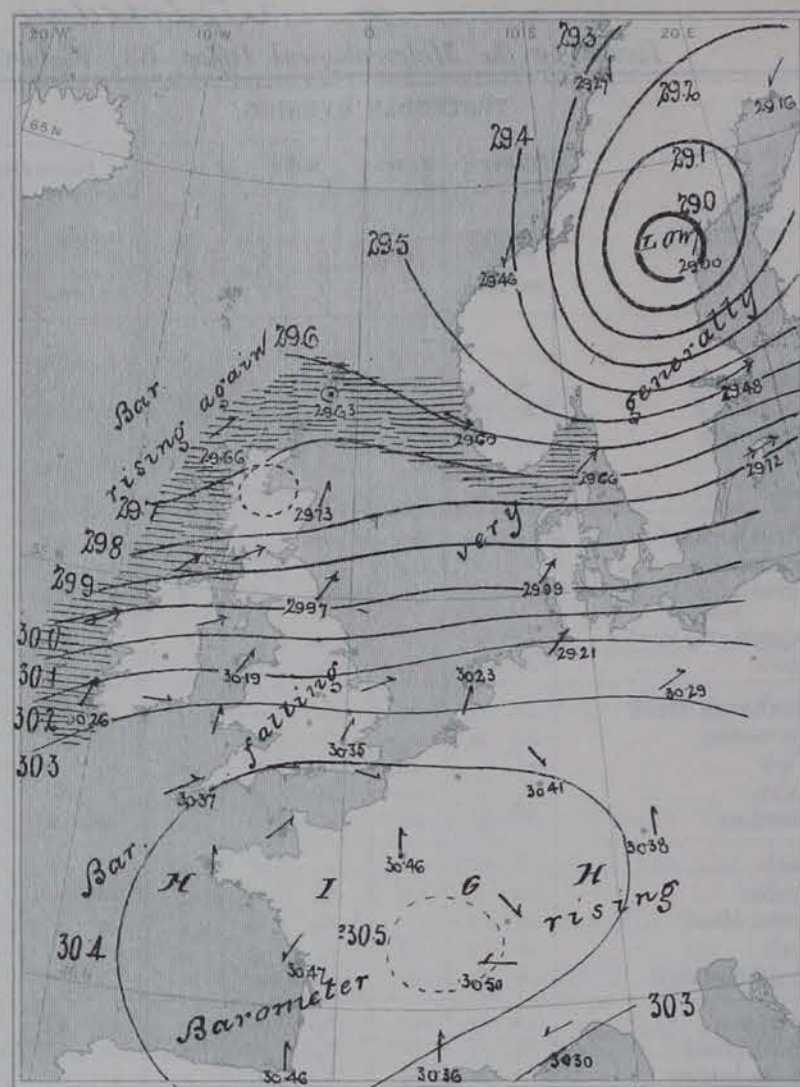 20°W
10°W
0
10°E
20°E
65°N
29.3
29.27
29.2
29.16
29.4
29.1
29.0
LOW
29.00
29.5
29.46
generally
29.6
Bar.
rising again
29.63
29.60
29.48
29.66
29.66
29.72
29.7
29.73
very
29.8
29.9
29.97
29.99
30.0
30.1
30.19
29.21
30.2
30.26
30.23
30.29
falling
30.3
30.35
30.37
30.41
30.38
Bar.
30.46
H I G H
rising
30.4
?30.5
30.47
30.50
Barometer
30.3
30.46
30.36
30.30